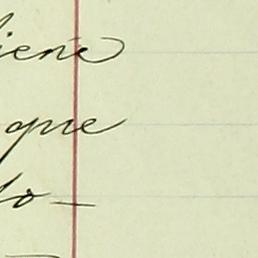 iene
que
do-